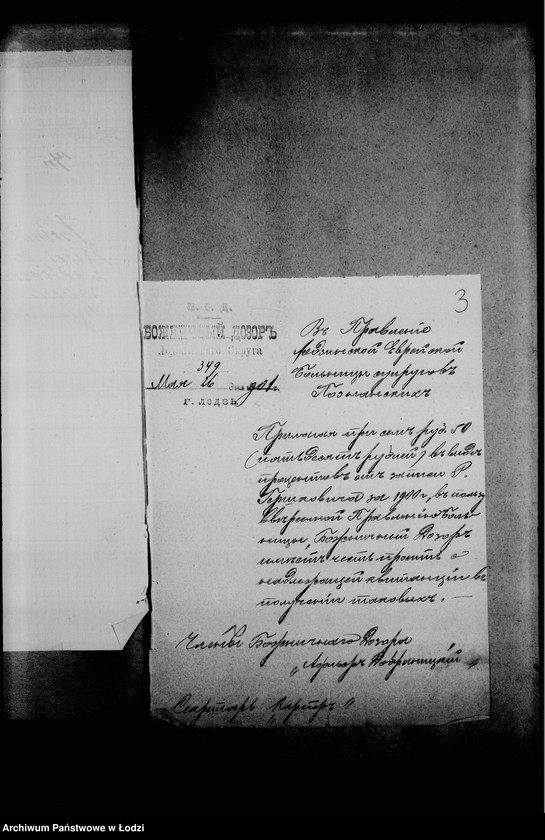 3
М. В. Д.
БОЖНИЧНЫЙ ДОЗОРЪ
Лодзинскаго Округа
349
Мая 16 дня 1901 г.
Г. ЛОДЗЬ
Въ Правленіе
Лодзинской Еврейской
Больницы супруговъ
Познанскихъ
Прилагая при семъ руб. 50
(пятьдесятъ рублей) въ видѣ
процентовъ отъ записи Р.
Гершковича за 1900 г., въ пользу
ввѣренной Правленію Боль-
ницы, Божничный Дозоръ
имѣетъ честь просить о
надлежащей квитанціи въ
полученіи таковыхъ. —
Члены Божничнаго Дозора
„ Адольфъ Добраницкій „
Секретарь „ „
Archiwum Państwowe w Łodzi